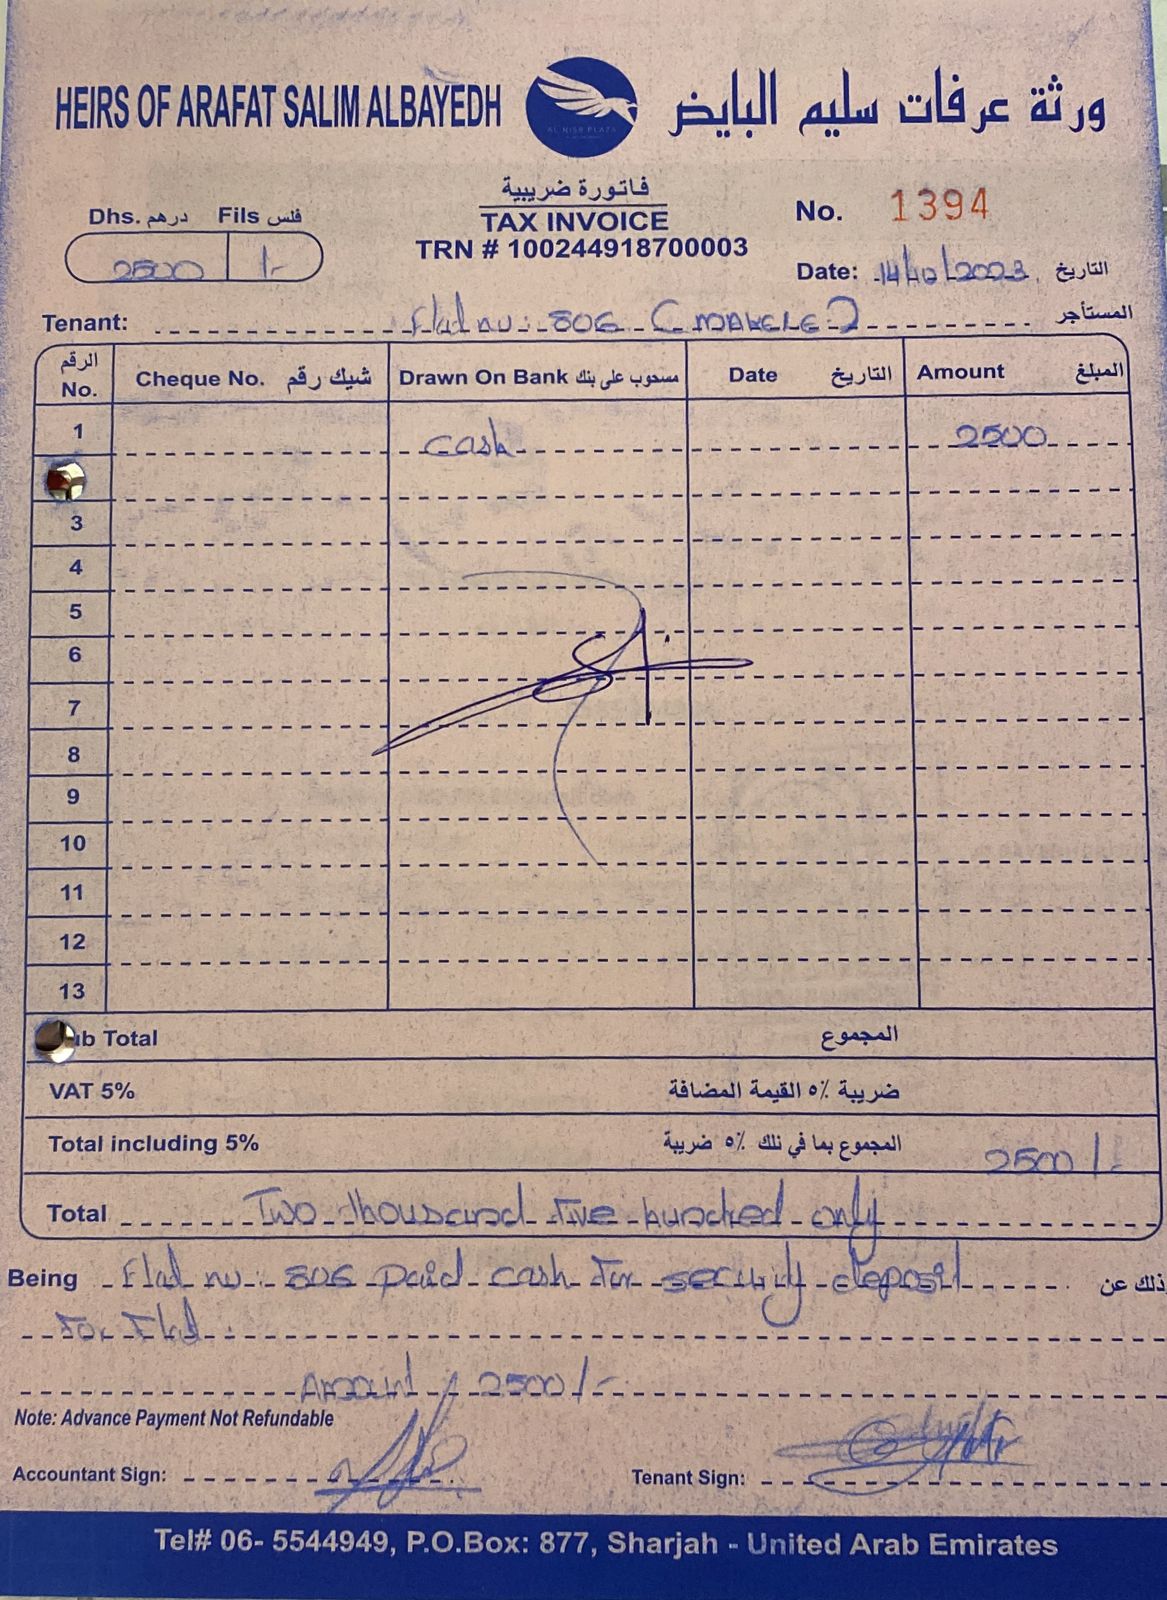 HEIRS OF ARAFAT SALIM ALBAYEDH
AL NISR PLAZA
ورثة عرفات سليم البايض
فاتورة ضريبية
TAX INVOICE
TRN # 100244918700003
Dhs. درهم Fils فلس
2500 /-
No. 1394
Date: 14/10/2023 التاريخ
Tenant: Flat no: 806 المستأجر
الرقم No. Cheque No. شيك رقم Drawn On Bank مسحوب على بنك Date التاريخ Amount المبلغ
1 cash 2500
3
4
5
6
7
8
9
10
11
12
13
ub Total المجموع
VAT 5% ضريبة ٥٪ القيمة المضافة
Total including 5% المجموع بما في تلك ٥٪ ضريبة 2500/-
Total Two thousand five hundred only
Being Flat no: 806 paid cash for security deposit ذلك عن
For Flat.
Amount: 2500/-
Note: Advance Payment Not Refundable
Accountant Sign:
Tenant Sign:
Tel# 06- 5544949, P.O.Box: 877, Sharjah - United Arab Emirates